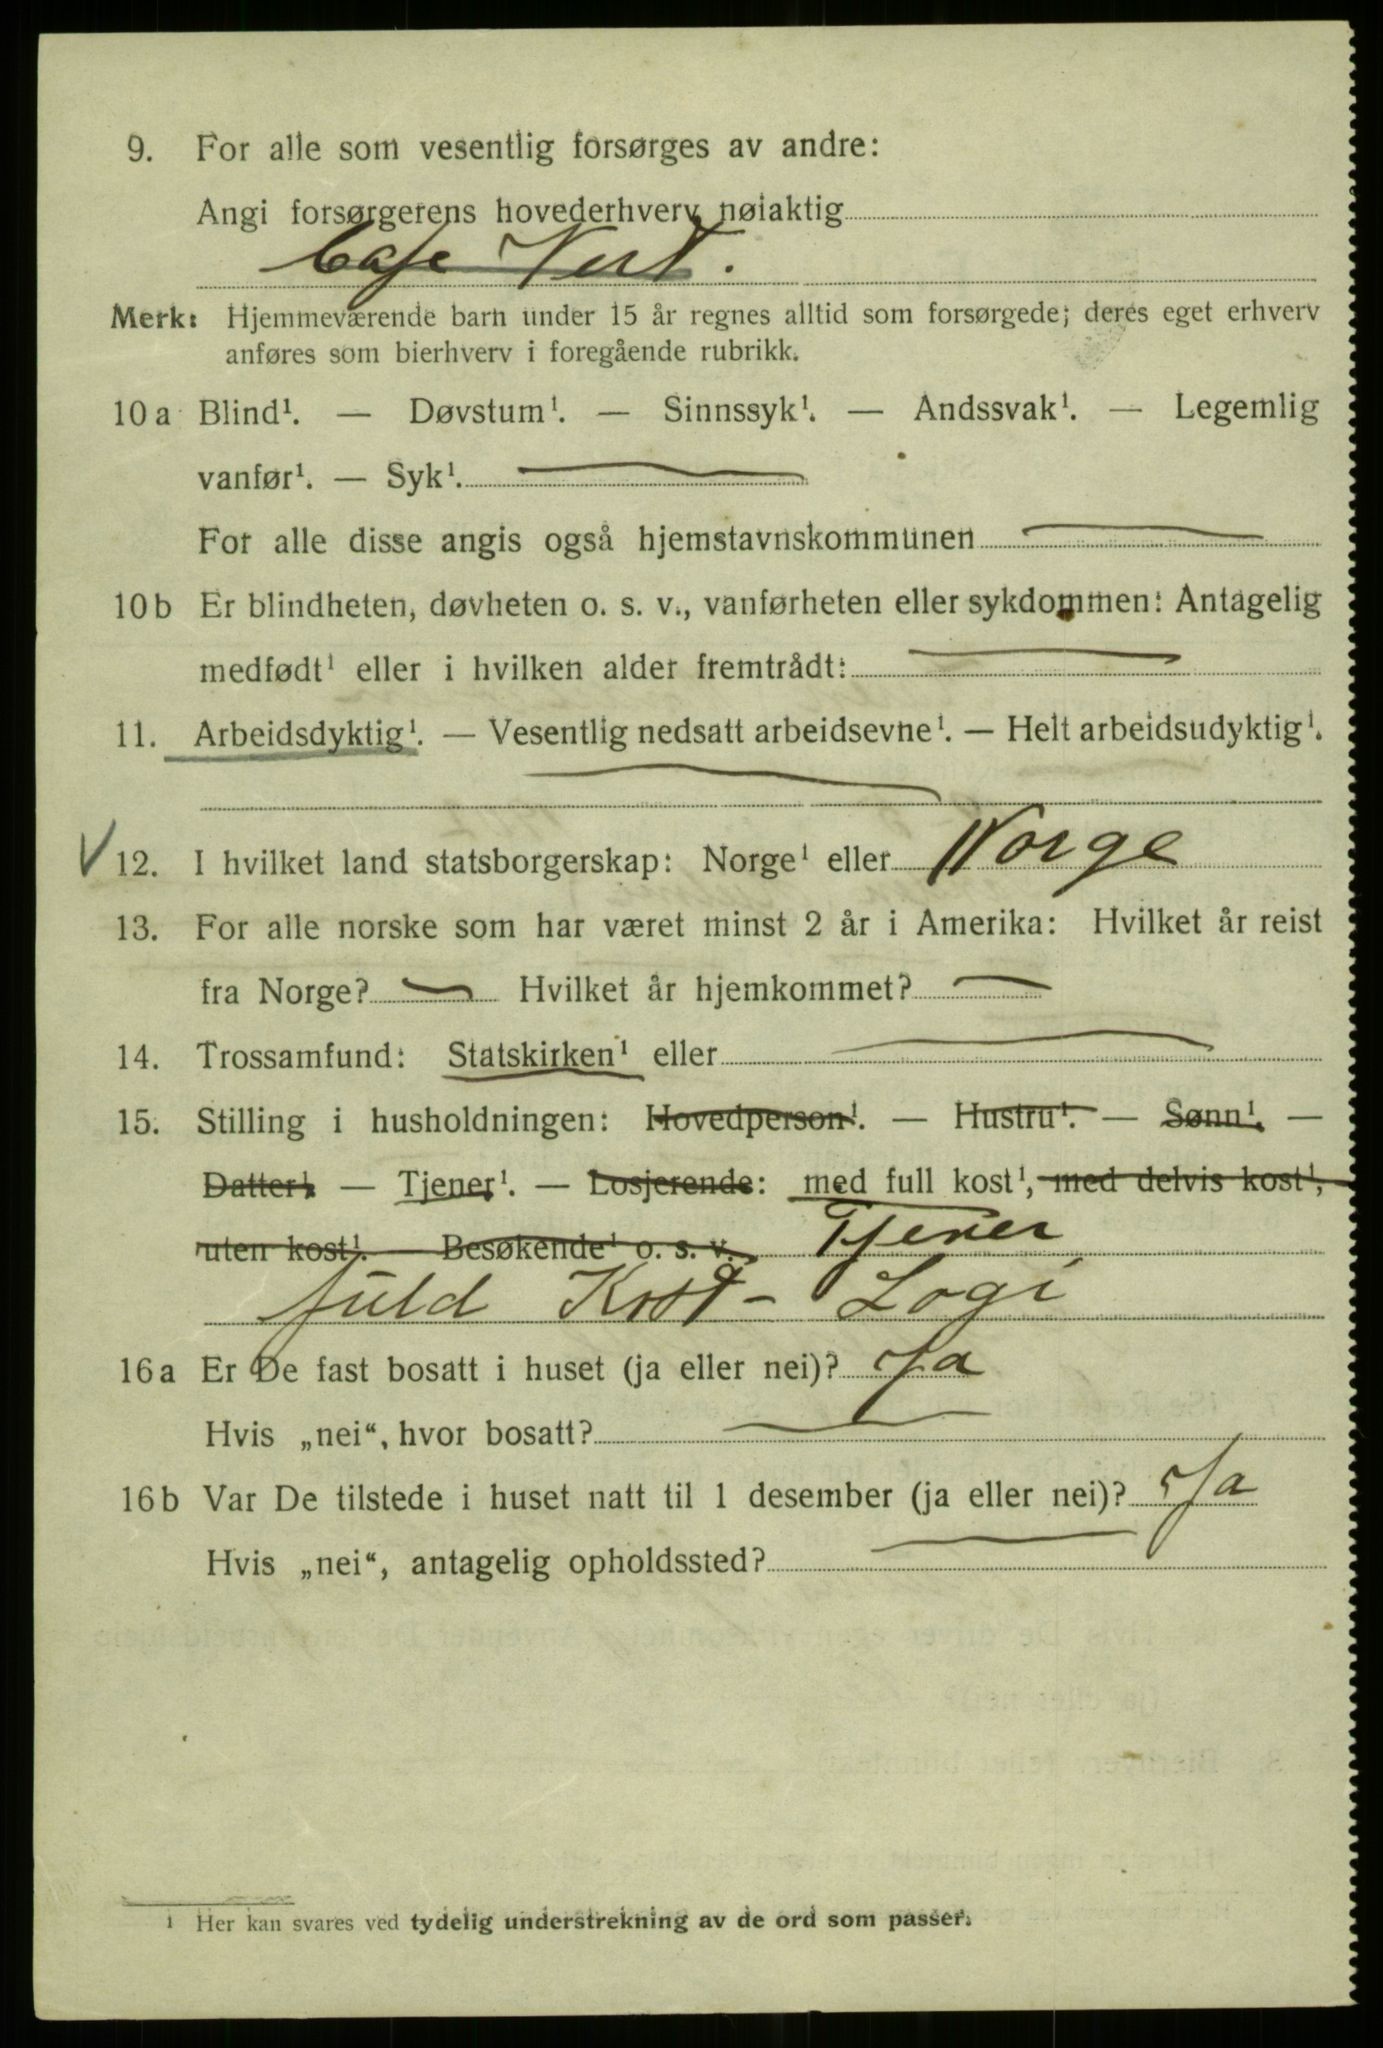 9. For alle som vesentlig forsørges av andre:
Angi forsørgerens hovederhverv nøiaktig
Cafe Vert.
Merk: Hjemmeværende barn under 15 år regnes alltid som forsørgede; deres eget erhverv
anføres som bierhverv i foregående rubrikk.
10 a Blind¹. — Døvstum¹. — Sinnssyk¹. — Andssvak¹. — Legemlig
vanfør¹. — Syk¹.
For alle disse angis også hjemstavnskommunen
10 b Er blindheten, døvheten o. s. v., vanførheten eller sykdommen: Antagelig
medfødt¹ eller i hvilken alder fremtrådt:
11. Arbeidsdyktig¹. — Vesentlig nedsatt arbeidsevne¹. — Helt arbeidsudyktig¹.
12. I hvilket land statsborgerskap: Norge¹ eller Norge
13. For alle norske som har været minst 2 år i Amerika: Hvilket år reist
fra Norge? — Hvilket år hjemkommet? —
14. Trossamfund: Statskirken¹ eller
15. Stilling i husholdningen: Hovedperson¹. — Hustru¹. — Sønn¹. —
Datter¹. — Tjener¹. — Losjerende: med full kost¹, med delvis kost¹,
uten kost¹. — Besøkende¹ o. s. v. Tjener
fuld Kost - Logi
16 a Er De fast bosatt i huset (ja eller nei)? Ja
Hvis „nei“, hvor bosatt?
16 b Var De tilstede i huset natt til 1 desember (ja eller nei)? Ja
Hvis „nei“, antagelig opholdssted?
¹ Her kan svares ved tydelig understrekning av de ord som passer.